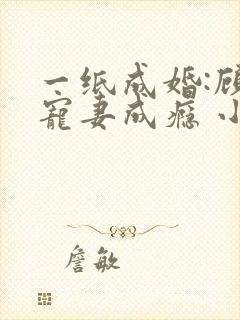 一纸成婚:顾
宠妻成瘾 小
詹敏